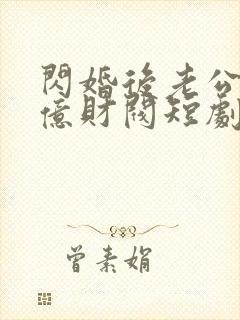 閃婚後老公
億財閥短劇
曾素娟